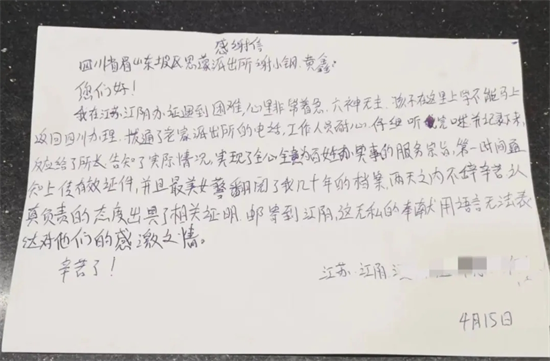 感谢信
四川省眉山东坡区思蒙派出所谢小钢、黄鑫:
您们好!
我在江苏江阴办证遇到困难,心里非常着急、六神无主,孩子在这里上学不能马上
返回四川办理,拨通了老家派出所的电话,工作人员耐心、仔细听完并记录下来,
反应给了所长,告知了实际情况,实现了全心全意为百姓办实事的服务宗旨,第一时间通
知上传有效证件,并且最美女警翻阅了我几十年的档案,两天之内不辞辛苦认
真负责的态度出具了相关证明,邮寄到江阴,这无私的奉献用语言无法表
达对他们的感激之情。
辛苦了!
江苏·江阴
4月15日